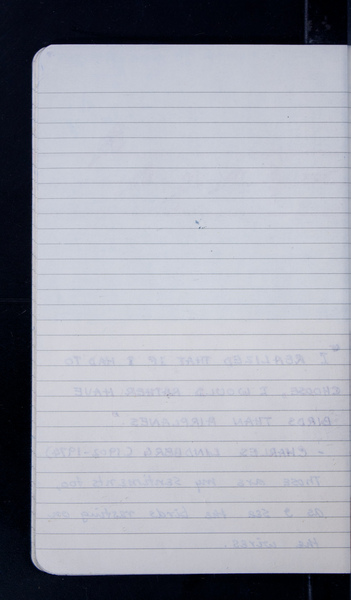 "I REALIZED THAT IF I HAD TO
CHOOSE, I WOULD RATHER HAVE
BIRDS THAN AIRPLANES"
- CHARLES LINDBERG (1902-1974)
These are my sentiments too
As I see the birds resting on
the wires.